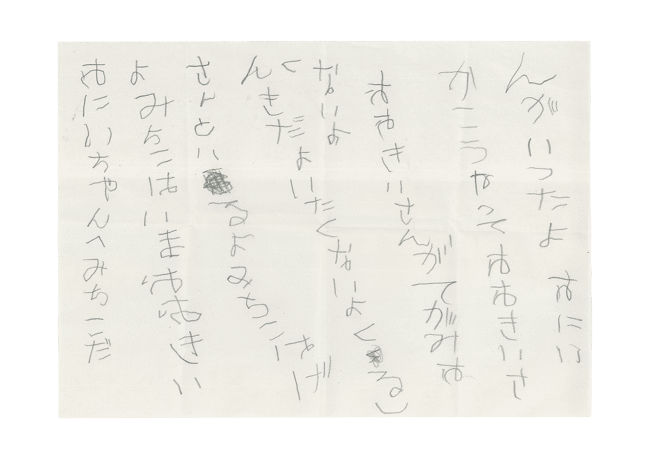 おにいちゃんへみちこだ
よみちこはいまおおきい
さんといるよみちこはげ
んきだよいたくないよくるし
くないよ
おおきいさんがてがみお
かこうやっておおきいさ
んがいったよ おにい